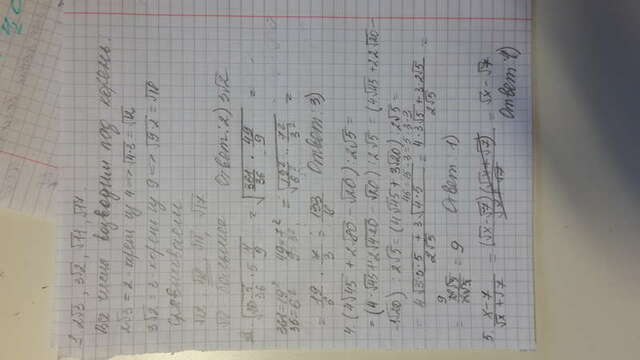 1. 2√3, 3√2, √11, √17.
Все числа возводим под корень.
2√3 = 2 - корень из 4 => √4·3 = √12
3√2 = 3 - корень из 9 => √9·2 = √18
Сравниваем
√12, √18, √11, √17
больше Ответ: 2) 3√2
= √361/36 · 49/9 =
361=19² 49=7²
36=6² 9=3² = √19²/6² · 7²/3² =
= 19/6 · 7/3 = 133/ Ответ: 3)
4. (4√45 + 2√80 − √20) : 2√5 =
= (4·√45 + 2√4·20 − √20) : 2√5 = (4√45 + 2·2√20 −
− 1√20) : 2√5 = (4√45 + 3√20) : 2√5 =
45 = 15·3 = 5·3·3
= 4√3·3·5 + 3√4·5 / 2√5 = 4·3√5 + 3·2√5 / 2√5 =
= 18√5 / 2√5 = 9 Ответ: 1)
5. x−7 / √x+√7 = (√x−√7)(√x+√7) / √x+√7 = √x − √7
Ответ: